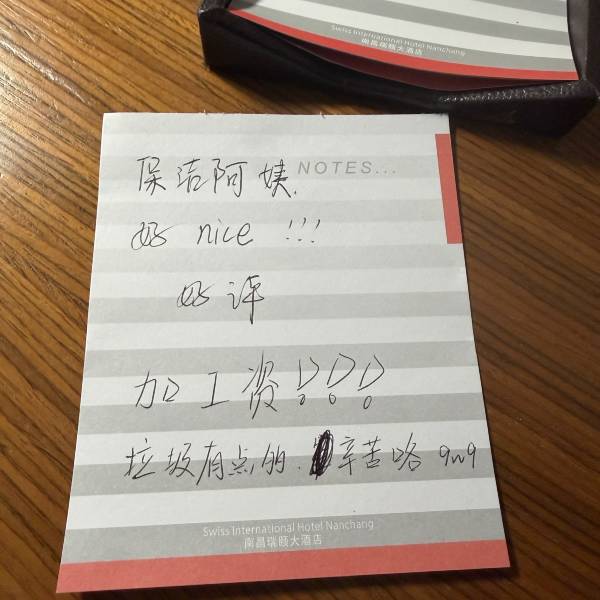 Swiss International Hotel Nanchang
南昌瑞颐大酒店
NOTES...
保洁阿姨
好 nice !!!
好评
加工资!!!
垃圾有点的. 辛苦咯 qwq
Swiss International Hotel Nanchang
南昌瑞颐大酒店